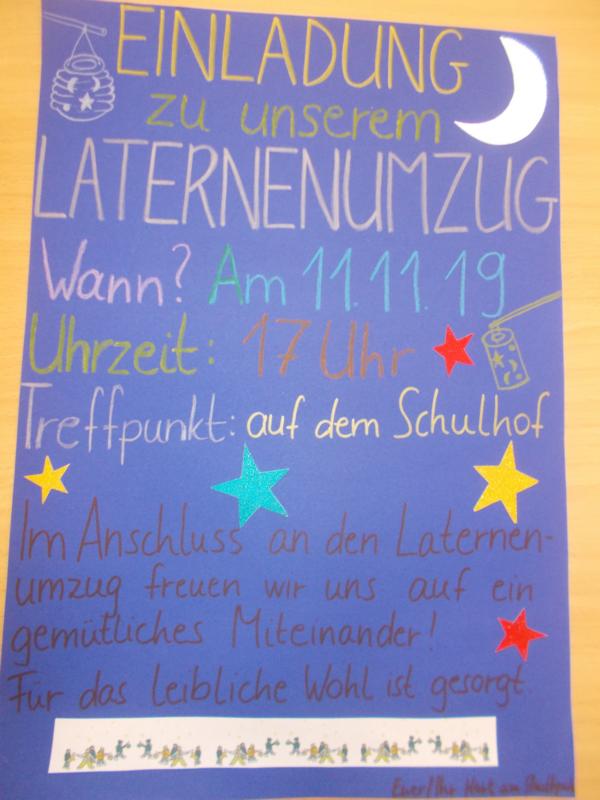 EINLADUNG
zu unserem
LATERNENUMZUG
Wann? Am 11.11.19
Uhrzeit: 17 Uhr
Treffpunkt: auf dem Schulhof
Im Anschluss an den Laternen-
umzug freuen wir uns auf ein
gemütliches Miteinander!
Für das leibliche Wohl ist gesorgt.
Euer/Ihr am